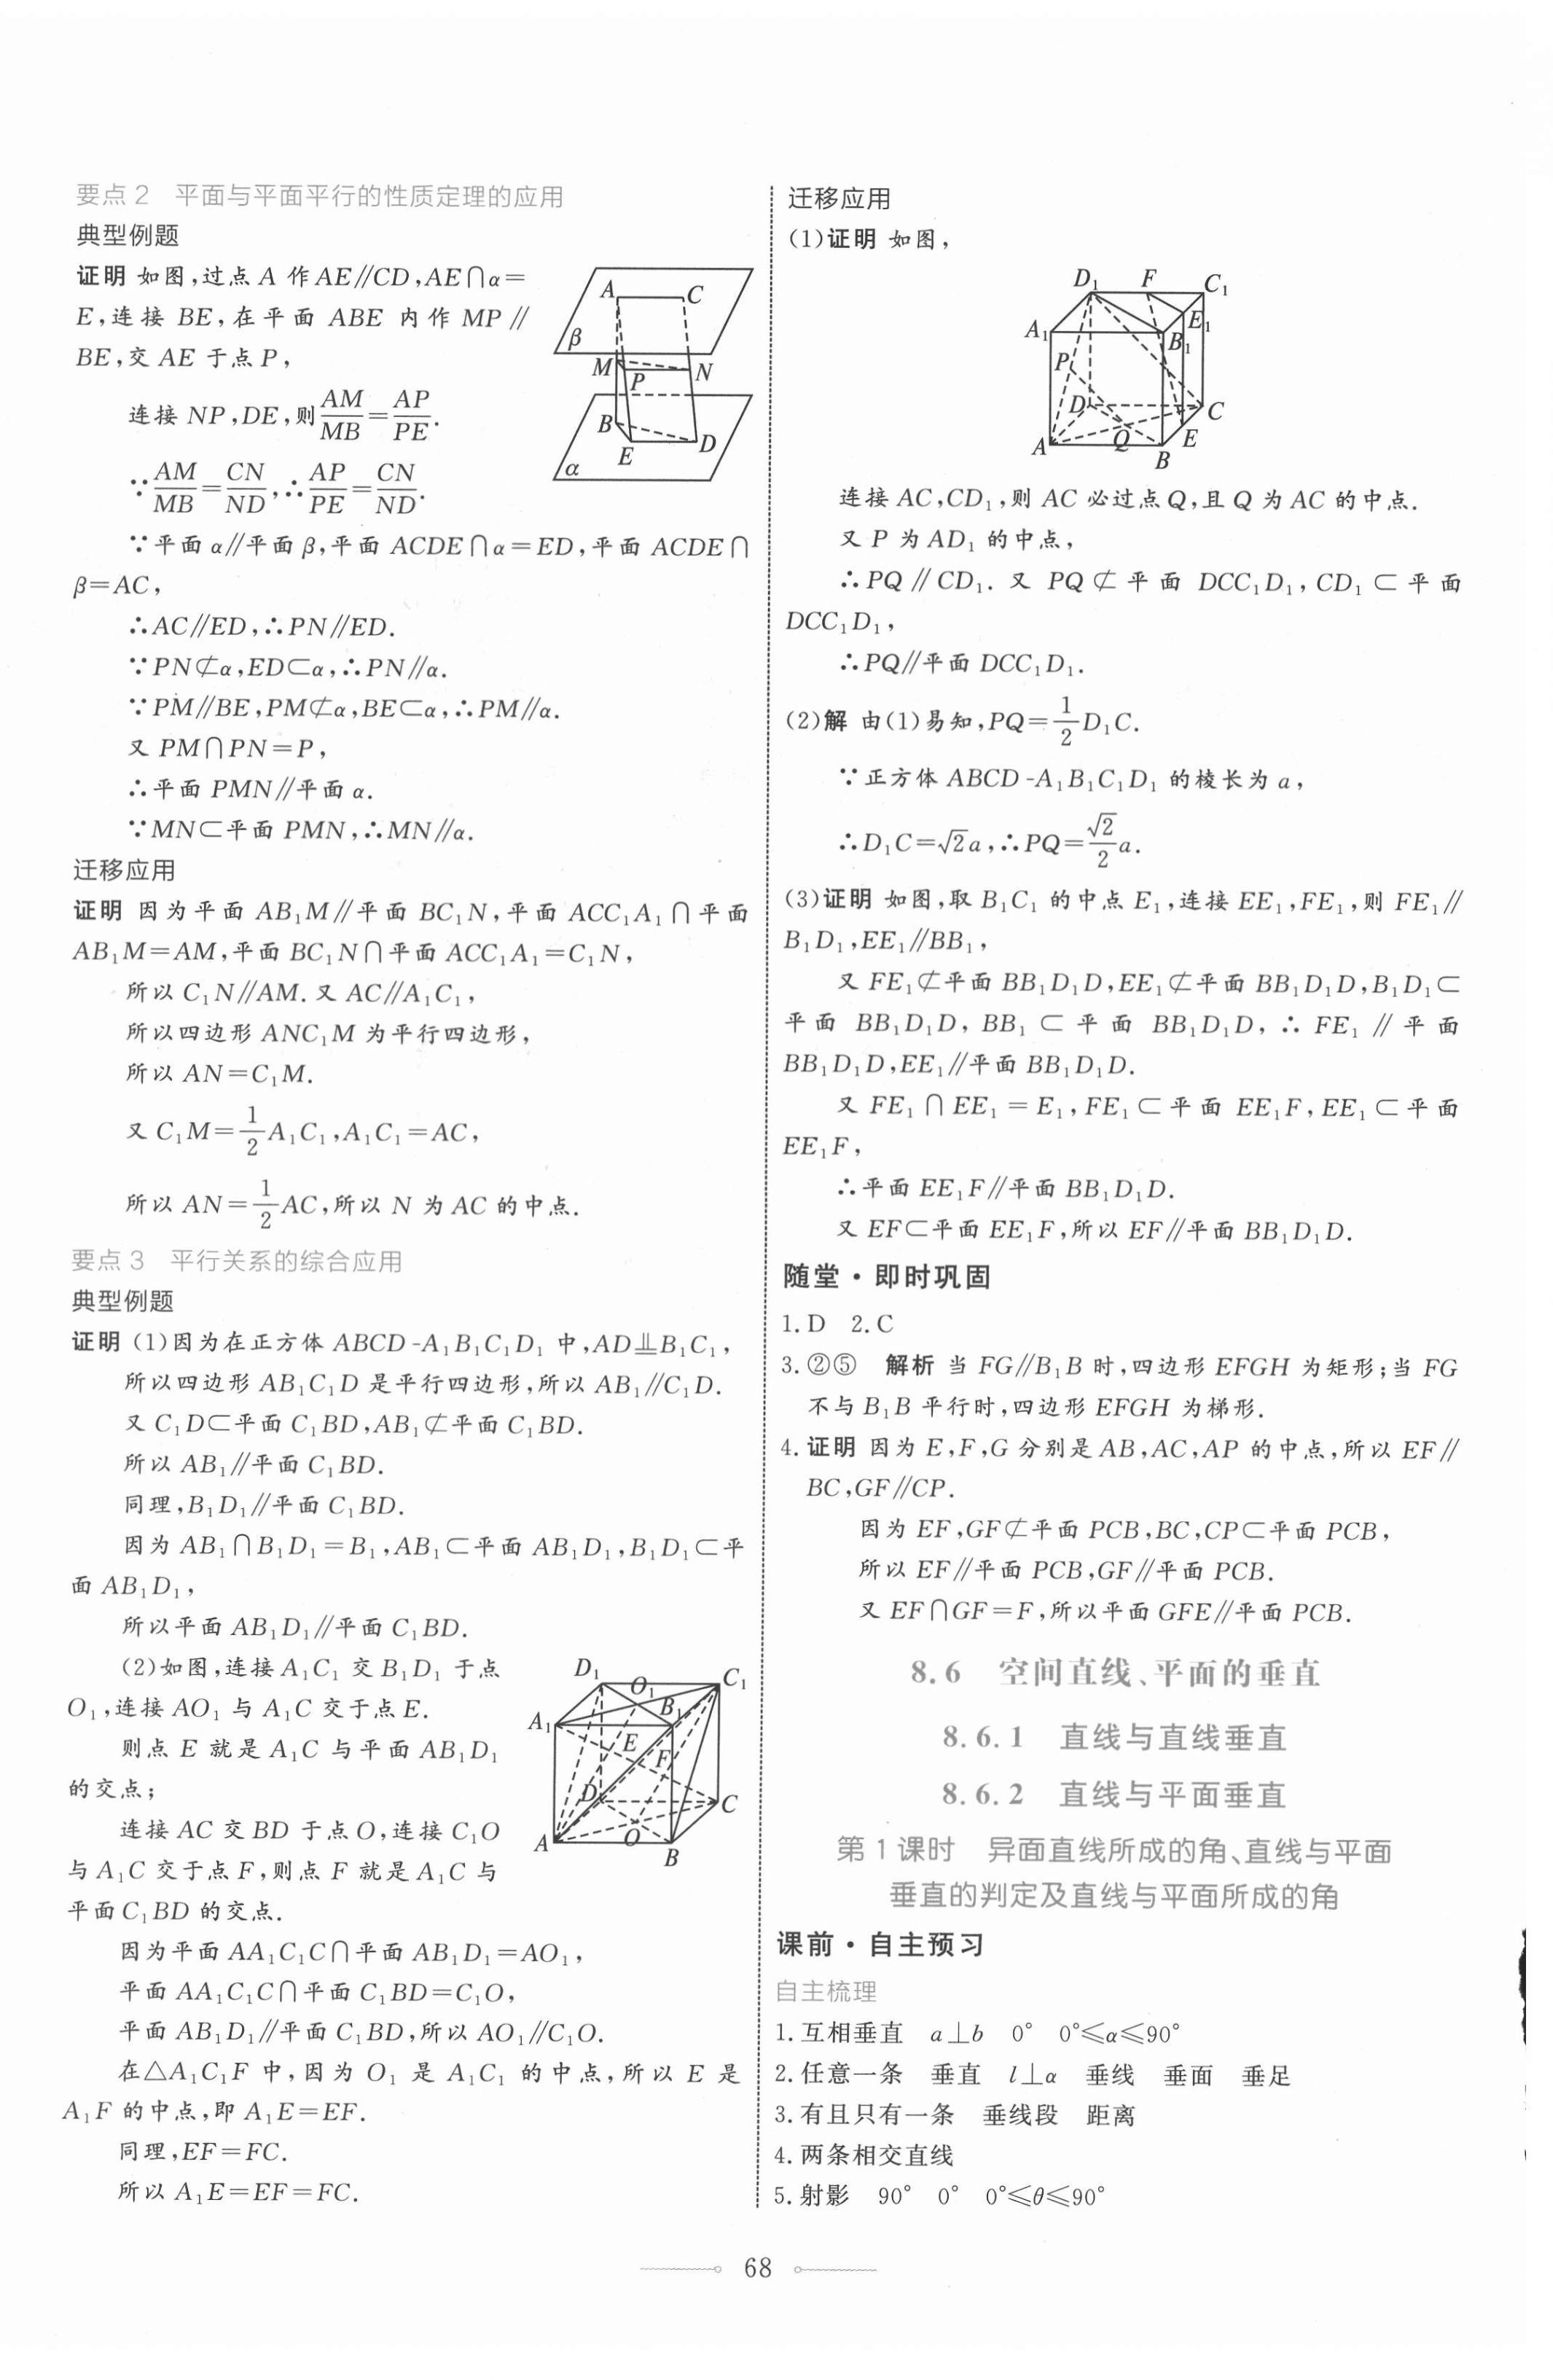 要点2 平面与平面平行的性质定理的应用
典型例题
证明 如图,过点 A 作 AE∥CD,AE∩α=
E,连接 BE,在平面 ABE 内作 MP∥
BE,交 AE 于点 P,
连接 NP,DE,则AM/MB=AP/PE.
∵AM/MB=CN/ND,∴AP/PE=CN/ND.
A C β M P N B E D α
∵平面 α∥平面 β,平面 ACDE∩α=ED,平面 ACDE∩
β=AC,
∴AC∥ED,∴PN∥ED.
∵PN⊄α,ED⊂α,∴PN∥α.
∵PM∥BE,PM⊄α,BE⊂α,∴PM∥α.
又 PM∩PN=P,
∴平面 PMN∥平面 α.
∵MN⊂平面 PMN,∴MN∥α.
迁移应用
证明 因为平面 AB₁M∥平面 BC₁N,平面 ACC₁A₁∩平面
AB₁M=AM,平面 BC₁N∩平面 ACC₁A₁=C₁N,
所以 C₁N∥AM.又 AC∥A₁C₁,
所以四边形 ANC₁M 为平行四边形,
所以 AN=C₁M.
又 C₁M=1/2A₁C₁,A₁C₁=AC,
所以 AN=1/2AC,所以 N 为 AC 的中点.
要点3 平行关系的综合应用
典型例题
证明 (1)因为在正方体 ABCD-A₁B₁C₁D₁ 中,AD⫫B₁C₁,
所以四边形 AB₁C₁D 是平行四边形,所以 AB₁∥C₁D.
又 C₁D⊂平面 C₁BD,AB₁⊄平面 C₁BD.
所以 AB₁∥平面 C₁BD.
同理,B₁D₁∥平面 C₁BD.
因为 AB₁∩B₁D₁=B₁,AB₁⊂平面 AB₁D₁,B₁D₁⊂平
面 AB₁D₁,
所以平面 AB₁D₁∥平面 C₁BD.
(2)如图,连接 A₁C₁ 交 B₁D₁ 于点
O₁,连接 AO₁ 与 A₁C 交于点 E.
则点 E 就是 A₁C 与平面 AB₁D₁
的交点;
连接 AC 交 BD 于点 O,连接 C₁O
与 A₁C 交于点 F,则点 F 就是 A₁C 与
平面 C₁BD 的交点.
D₁ O₁ C₁ A₁ B₁ E F D C A O B
因为平面 AA₁C₁C∩平面 AB₁D₁=AO₁,
平面 AA₁C₁C∩平面 C₁BD=C₁O,
平面 AB₁D₁∥平面 C₁BD,所以 AO₁∥C₁O.
在△A₁C₁F 中,因为 O₁ 是 A₁C₁ 的中点,所以 E 是
A₁F 的中点,即 A₁E=EF.
同理,EF=FC.
所以 A₁E=EF=FC.
迁移应用
(1)证明 如图,
D₁ F C₁ A₁ B₁ E₁ P D C A Q E B
连接 AC,CD₁,则 AC 必过点 Q,且 Q 为 AC 的中点.
又 P 为 AD₁ 的中点,
∴PQ∥CD₁. 又 PQ⊄平面 DCC₁D₁,CD₁⊂平面
DCC₁D₁,
∴PQ∥平面 DCC₁D₁.
(2)解 由(1)易知,PQ=1/2D₁C.
∵正方体 ABCD-A₁B₁C₁D₁ 的棱长为 a,
∴D₁C=√2a,∴PQ=√2/2a.
(3)证明 如图,取 B₁C₁ 的中点 E₁,连接 EE₁,FE₁,则 FE₁∥
B₁D₁,EE₁∥BB₁,
又 FE₁⊄平面 BB₁D₁D,EE₁⊄平面 BB₁D₁D,B₁D₁⊂
平面 BB₁D₁D, BB₁⊂平面 BB₁D₁D,∴FE₁∥平面
BB₁D₁D,EE₁∥平面 BB₁D₁D.
又 FE₁∩EE₁=E₁,FE₁⊂平面 EE₁F,EE₁⊂平面
EE₁F,
∴平面 EE₁F∥平面 BB₁D₁D.
又 EF⊂平面 EE₁F,所以 EF∥平面 BB₁D₁D.
随堂·即时巩固
1.D 2.C
3.②⑤ 解析 当 FG∥B₁B 时,四边形 EFGH 为矩形;当 FG
不与 B₁B 平行时,四边形 EFGH 为梯形.
4.证明 因为 E,F,G 分别是 AB,AC,AP 的中点,所以 EF∥
BC,GF∥CP.
因为 EF,GF⊄平面 PCB,BC,CP⊂平面 PCB,
所以 EF∥平面 PCB,GF∥平面 PCB.
又 EF∩GF=F,所以平面 GFE∥平面 PCB.
8.6 空间直线、平面的垂直
8.6.1 直线与直线垂直
8.6.2 直线与平面垂直
第1课时 异面直线所成的角、直线与平面
垂直的判定及直线与平面所成的角
课前·自主预习
自主梳理
1.互相垂直 a⊥b 0° 0°≤α≤90°
2.任意一条 垂直 l⊥α 垂线 垂面 垂足
3.有且只有一条 垂线段 距离
4.两条相交直线
5.射影 90° 0° 0°≤θ≤90°
68